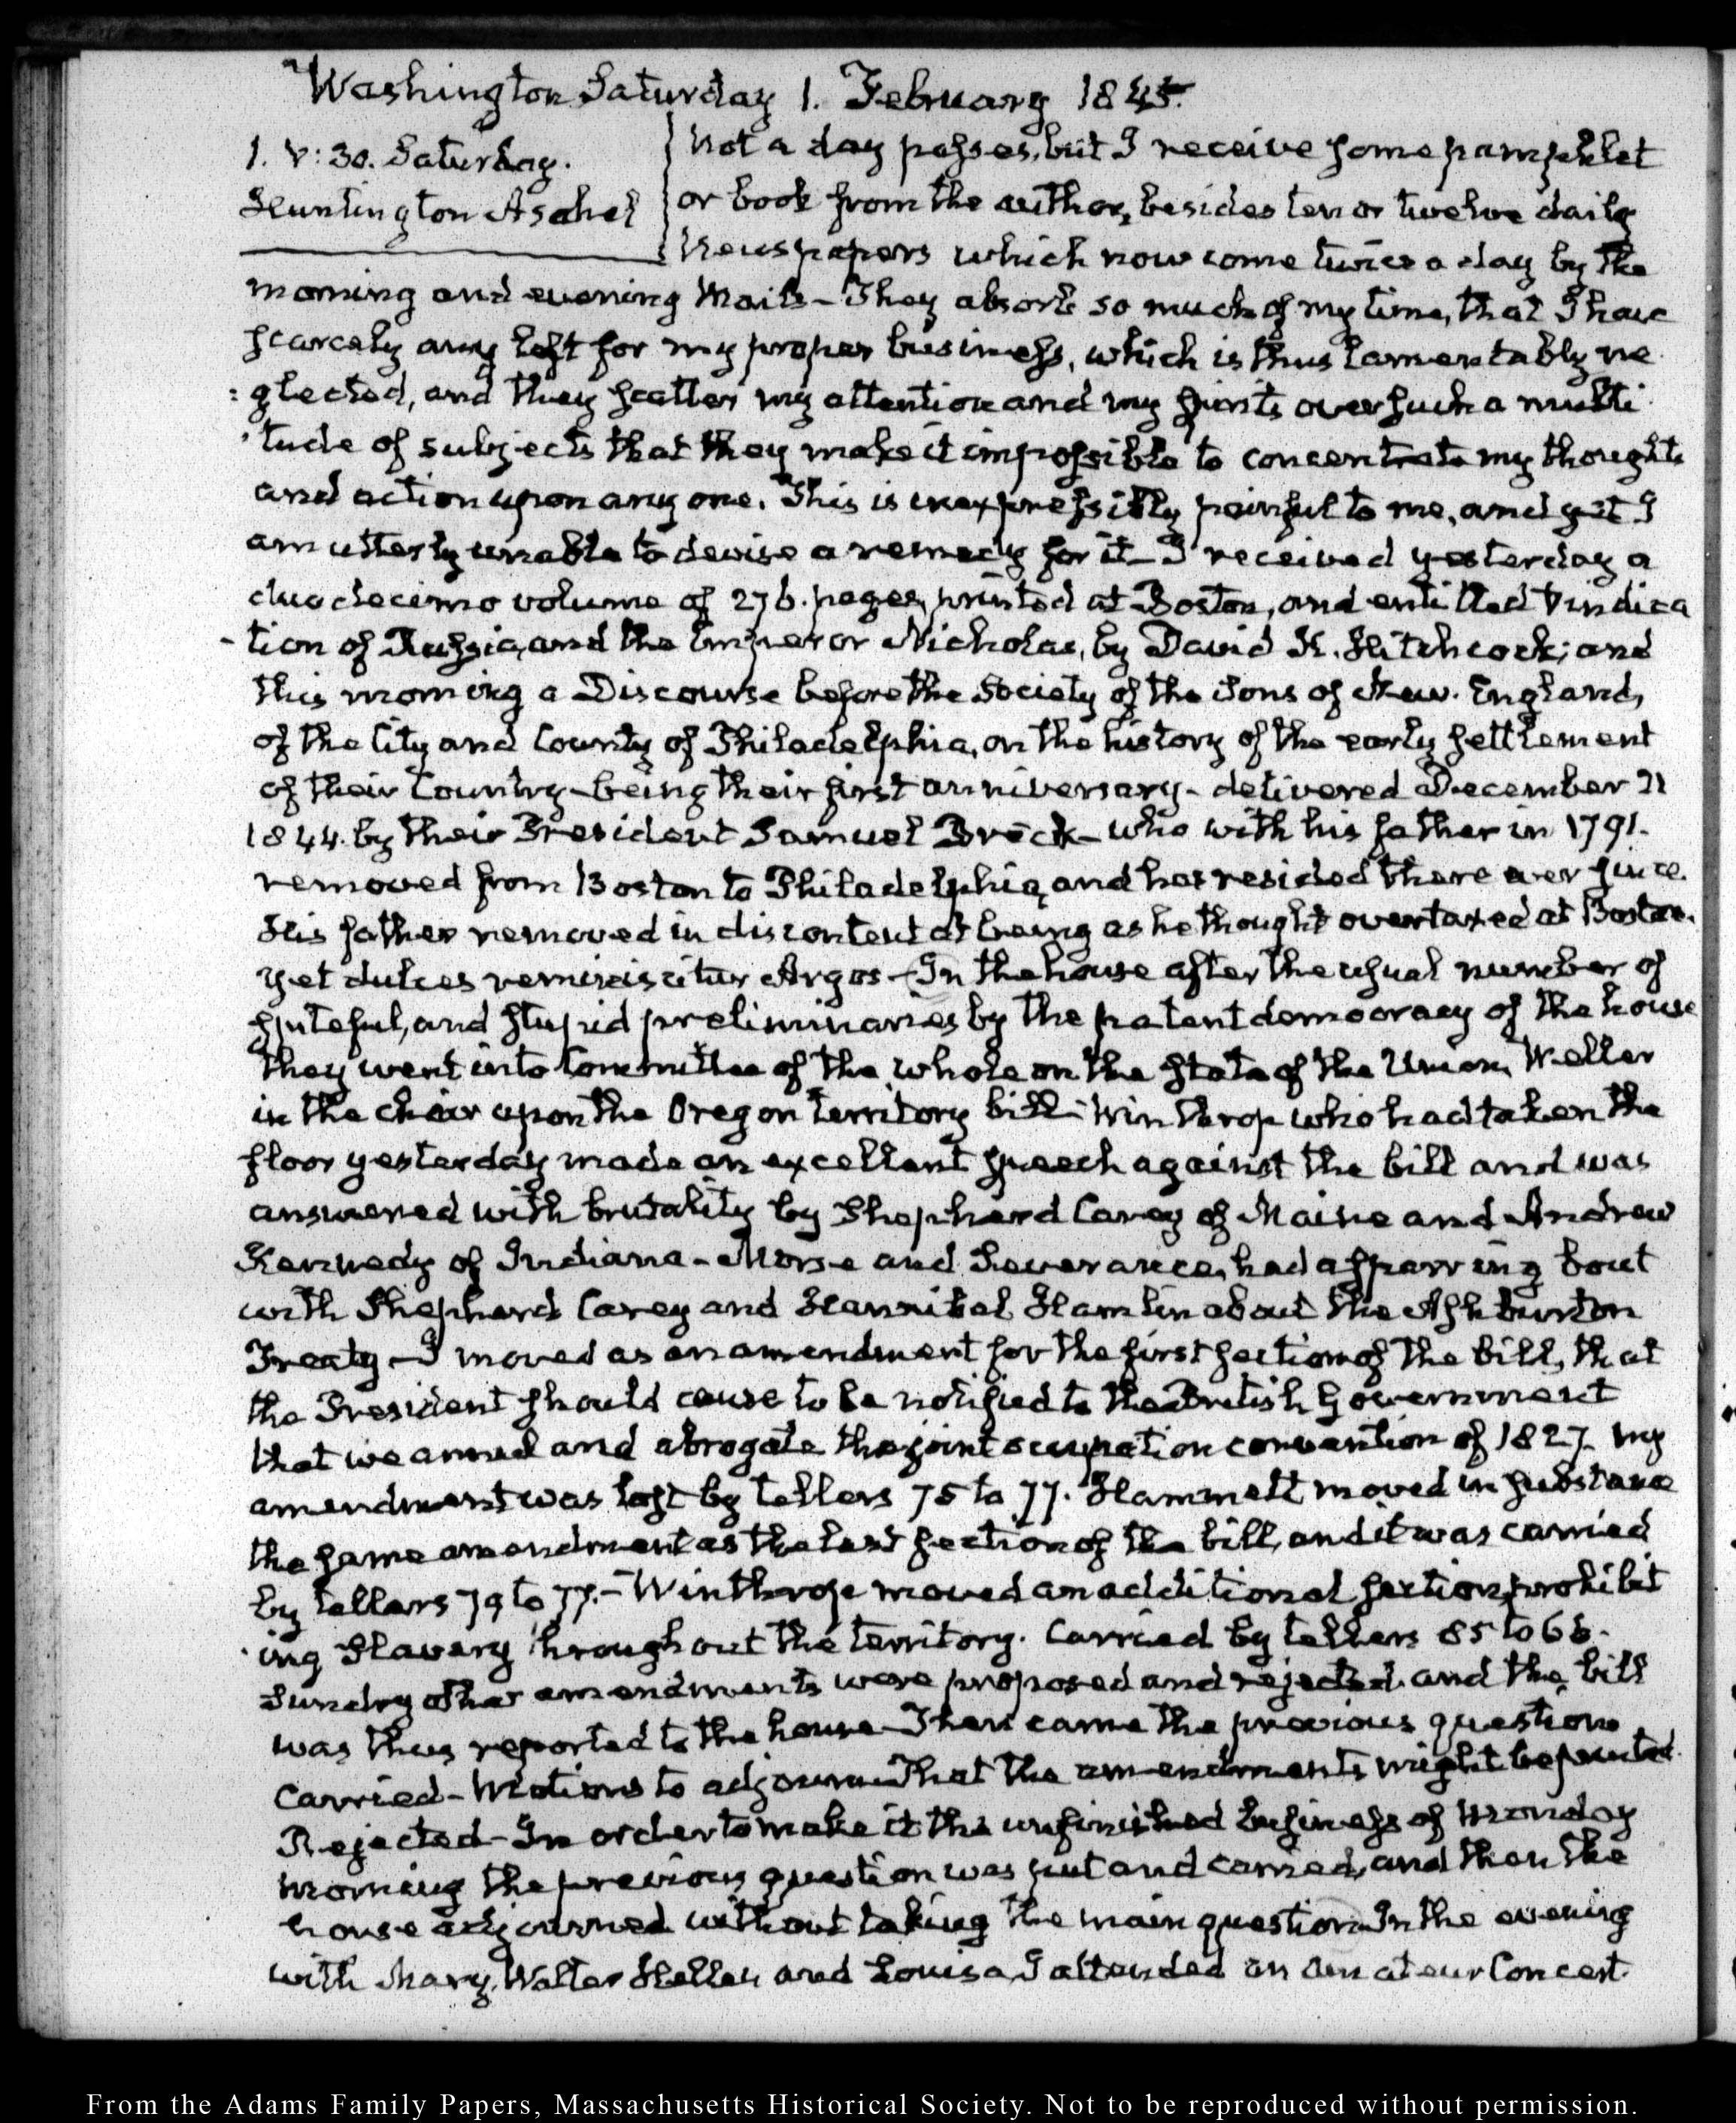 Washington Saturday 1. February 1845.
1. V:30. Saturday.
Huntington Asahel
Not a day passes, but I receive some pamphlet
or book from the author, besides ten or twelve daily
Newspapers which now come twice a day by the
morning and evening Mails – They absorb so much of my time, that I have
scarcely any left for my proper business, which is thus lamentably ne
: glected, and they scatter my attention and my spirits over such a multi
· tude of subjects that they make it impossible to concentrate my thoughts
and action upon any one. This is inexpressibly painful to me, and yet I
am utterly unable to devise a remedy for it – I received yesterday a
duodecimo volume of 276. pages, printed at Boston, and entitled Vindica
- tion of Russia, and the Emperor Nicholas, by David K. Hitchcock; and
this morning a Discourse before the Society of the Sons of New. England,
of the City and County of Philadelphia, on the history of the early settlement
of their Country – being their first anniversary – delivered December 21
1844. by their President Samuel Breck – who with his father in 1791.
removed from Boston to Philadelphia, and has resided there ever since.
His father removed in discontent at being as he thought overtaxed at Boston.
yet dulces reminiscitur Argos – In the house after the usual number of
spiteful, and stupid preliminaries by the patent democracy of the house
they went into Committee of the whole on the state of the Union, Weller
in the chair upon the Oregon territory bill – Winthrop who had taken the
floor yesterday made an excellent speech against the bill and was
answered with brutality by Shephard Carey of Maine and Andrew
Kennedy of Indiana – Morse and Severance, had a sparring bout
with Shephard Carey and Hannibal Hamlin about the Ashburton
Treaty – I moved as an amendment for the first section of the bill, that
the President should cause to be notified to the British Government
that we annul and abrogate the joint occupation convention of 1827. My
amendment was lost by tellers 75 to 77. Hammett moved in substance
the same amendment as the last section of the bill, and it was carried
by tellers 79 to 77. – Winthrop moved an additional section, prohibit
· ing Slavery throughout the territory. Carried by tellers 85 to 66.
Sundry other amendments were proposed and rejected, and the bill
was thus reported to the house – Then came the previous question
carried – Motions to adjourn – That the amendments might be printed.
Rejected – In order to make it the unfinished business of Monday
morning the previous question was put and carried, and then the
house adjourned without taking the main question – In the evening
with Mary, Walter Hellen and Louisa, I attended an amateur Concert.
From the Adams Family Papers, Massachusetts Historical Society. Not to be reproduced without permission.